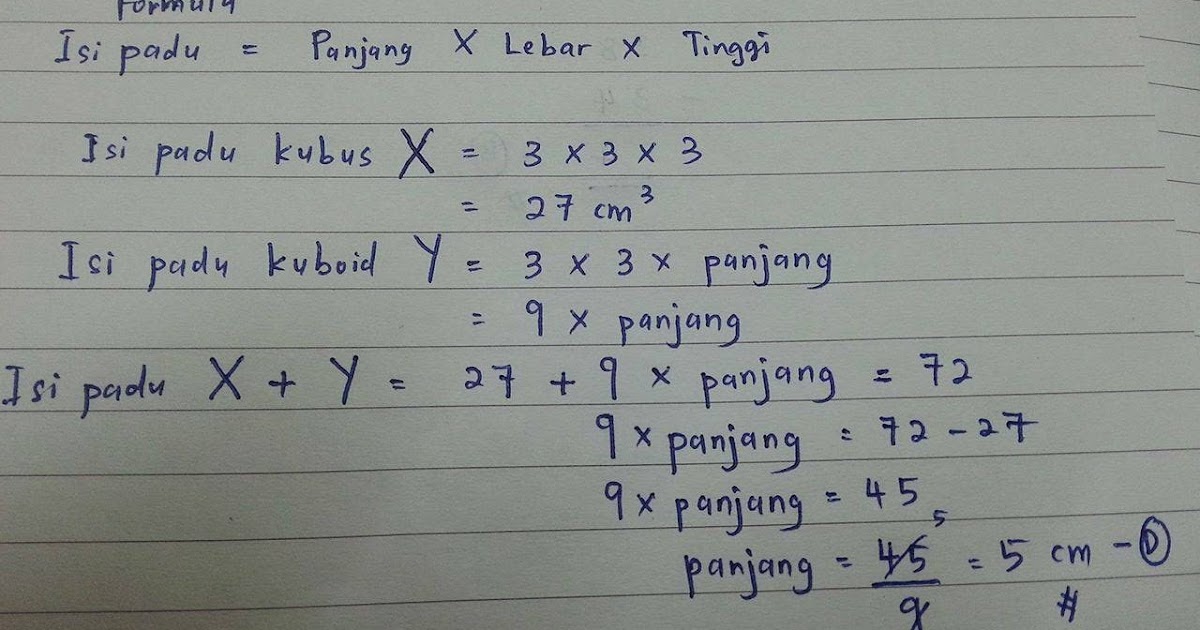 Formula
Isi padu = Panjang X Lebar x Tinggi
Isi padu kubus X = 3 x 3 x 3
= 27 cm³
Isi padu kuboid Y = 3 x 3 x panjang
= 9 x panjang
Isi padu X + Y = 27 + 9 x panjang = 72
9 x panjang = 72 - 27
9 x panjang = 45
panjang = 45/9 5 = 5 cm - D
#